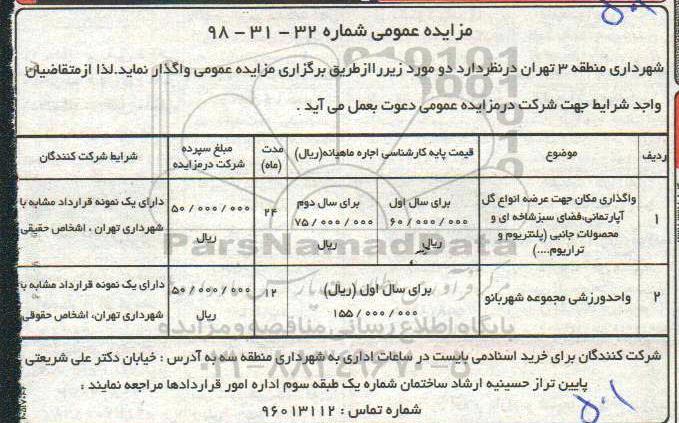 مزایده عمومی شماره ۳۲ - ۳۱ - ۹۸
شهرداری منطقه ۳ تهران درنظردارد دو مورد زیررا ازطریق برگزاری مزایده عمومی واگذار نماید.لذا ازمتقاضیان
واجد شرایط جهت شرکت درمزایده عمومی دعوت بعمل می آید .
ردیف
موضوع
قیمت پایه کارشناسی اجاره ماهیانه(ریال)
مدت (ماه)
مبلغ سپرده شرکت درمزایده
شرایط شرکت کنندگان
۱
واگذاری مکان جهت عرضه انواع گل
آپارتمانی،فضای سبزشاخه ای و
محصولات جانبی (پلنتریوم و
تراریوم....)
برای سال اول
۶۰/۰۰۰/۰۰۰
ریال
برای سال دوم
۷۵/۰۰۰/۰۰۰
ریال
۲۴
۵۰/۰۰۰/۰۰۰
ریال
دارای یک نمونه قرارداد مشابه با
شهرداری تهران ، اشخاص حقیقی
۲
واحدورزشی مجموعه شهربانو
برای سال اول (ریال)
۱۵۵/۰۰۰/۰۰۰
۱۲
۵۰/۰۰۰/۰۰۰
ریال
دارای یک نمونه قرارداد مشابه با
شهرداری تهران، اشخاص حقوقی
شرکت کنندگان برای خرید اسنادمی بایست در ساعات اداری به شهرداری منطقه سه به آدرس : خیابان دکتر علی شریعتی ،
پایین تراز حسینیه ارشاد ساختمان شماره یک طبقه سوم اداره امور قراردادها مراجعه نمایند :
شماره تماس : ۹۶۰۱۳۱۱۲
ParsNamadData
پایگاه اطلاع رسانی مناقصه و مزایده